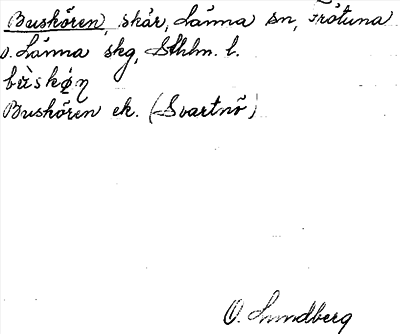 Buskören, skär, Länna sn, Frötuna
o. Länna skg, Sthlm. l.
Buskören ek. (Svartnö)
O. Lundberg